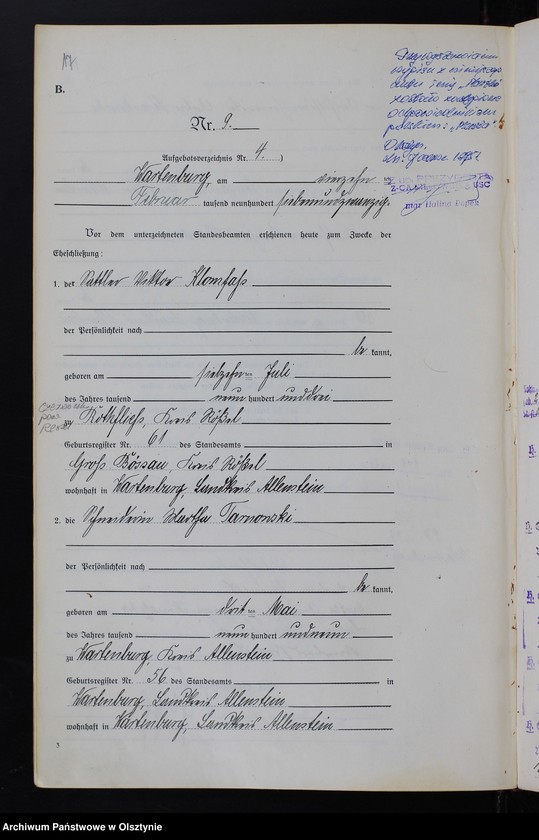 B.
Nr. 9.
Aufgebotsverzeichnis Nr. 4.)
Wartenburg, am vierzehn ten
Februar tausend neunhundert siebenundzwanzig.
Vor dem unterzeichneten Standesbeamten erschienen heute zum Zwecke der
Eheschließung:
1. der Sattler Viktor Klomfaß
der Persönlichkeit nach
be kannt,
geboren am siebzehn ten Juli
des Jahres tausend neun hundert und drei
zu Rothfließ, Kreis Rößel
Geburtsregister Nr. 61 des Standesamts in
Groß Bössau, Kreis Rößel
wohnhaft in Wartenburg, Landkreis Allenstein
2. die Schneiderin Martha Tarnowski
der Persönlichkeit nach
be kannt,
geboren am drit ten Mai
des Jahres tausend neun hundert und neun
zu Wartenburg, Kreis Allenstein
Geburtsregister Nr. 56 des Standesamts in
Wartenburg, Landkreis Allenstein
wohnhaft in Wartenburg, Landkreis Allenstein
3
Archiwum Państwowe w Olsztynie